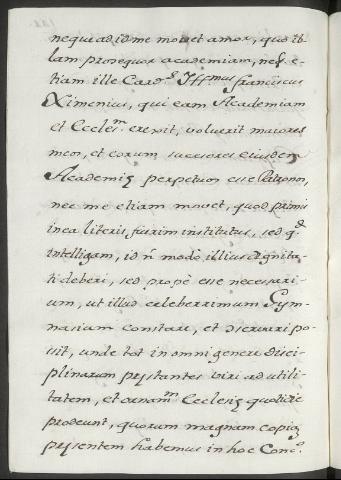 nequi ad id me movet amor, quo il-
lam prosequor academiam, nec e-
tiam ille Card.s Ill.mus Franciscus
Ximenius, qui eam Academiam
et Eccles.m erexit, voluerit maiores
meos, et eorum sucesores eiusdem
Academię perpetuos esse Patronos,
nec me etiam movet, quod primis
in ea literis fuirim institutus, sed q.d
intelligam, id ñ modò illius dignita-
ti deberi, sed propè esse necessari-
um, ut illud celeberrimum Gym-
nasium constare, et
sit, unde tot in omni genere disci-
plinarum pręstantes viri ad utili-
tatem, et ornam.m Ecclesię quotidie
prodeunt, quorum magnam copiã
pręsentem habemus in hoc Conc.o